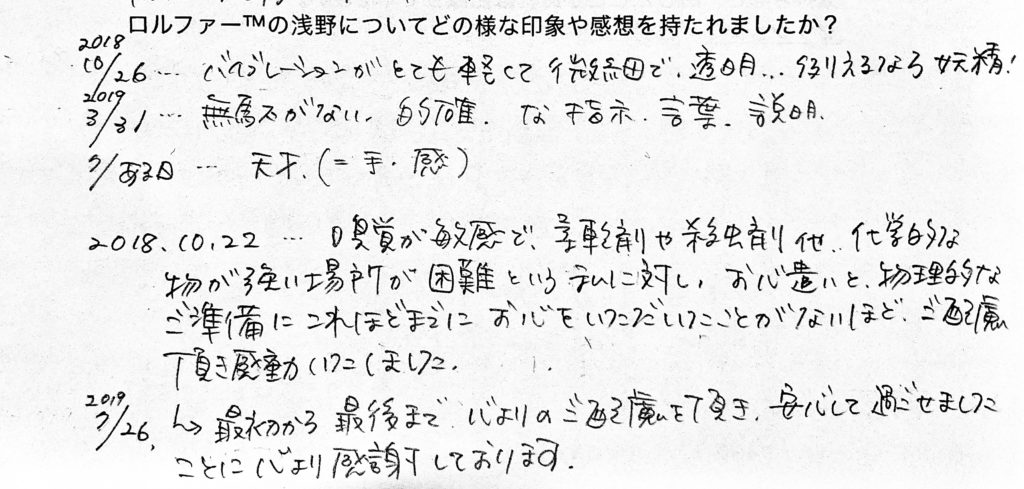 ロルファー™の浅野についてどの様な印象や感想を持たれましたか？
2018
10/26 … バイブレーションがとても軽くて微細で、透明… 例えるなら妖精！
2019
3/31 … 無駄がない、的確、な指示、言葉、説明、
7/ある日 … 天才、(＝手・感)
2018.10.22 … 嗅覚が敏感で、柔軟剤や殺虫剤他、化学的な
物が強い場所が困難という私に対し、お心遣いと、物理的な
ご準備にこれほどまでにお心をいただいたことがないほど、ご配慮
頂き感動いたしました。
2019
7/26, ↳ 最初から最後まで、心よりのご配慮を頂き、安心して過ごせました
ことに心より感謝しております。